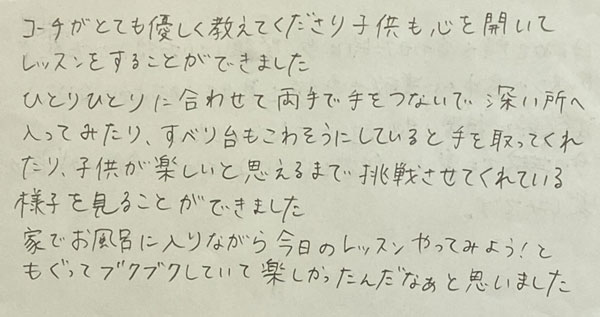 コーチがとても優しく教えてくださり子供も心を開いて
レッスンをすることができました
ひとりひとりに合わせて両手で手をつないで深い所へ
入ってみたり、すべり台もこわそうにしていると手を取ってくれ
たり、子供が楽しいと思えるまで挑戦させてくれている
様子を見ることができました
家でお風呂に入りながら今日のレッスンやってみよう!と
もぐってブクブクしていて楽しかったんだなぁと思いました